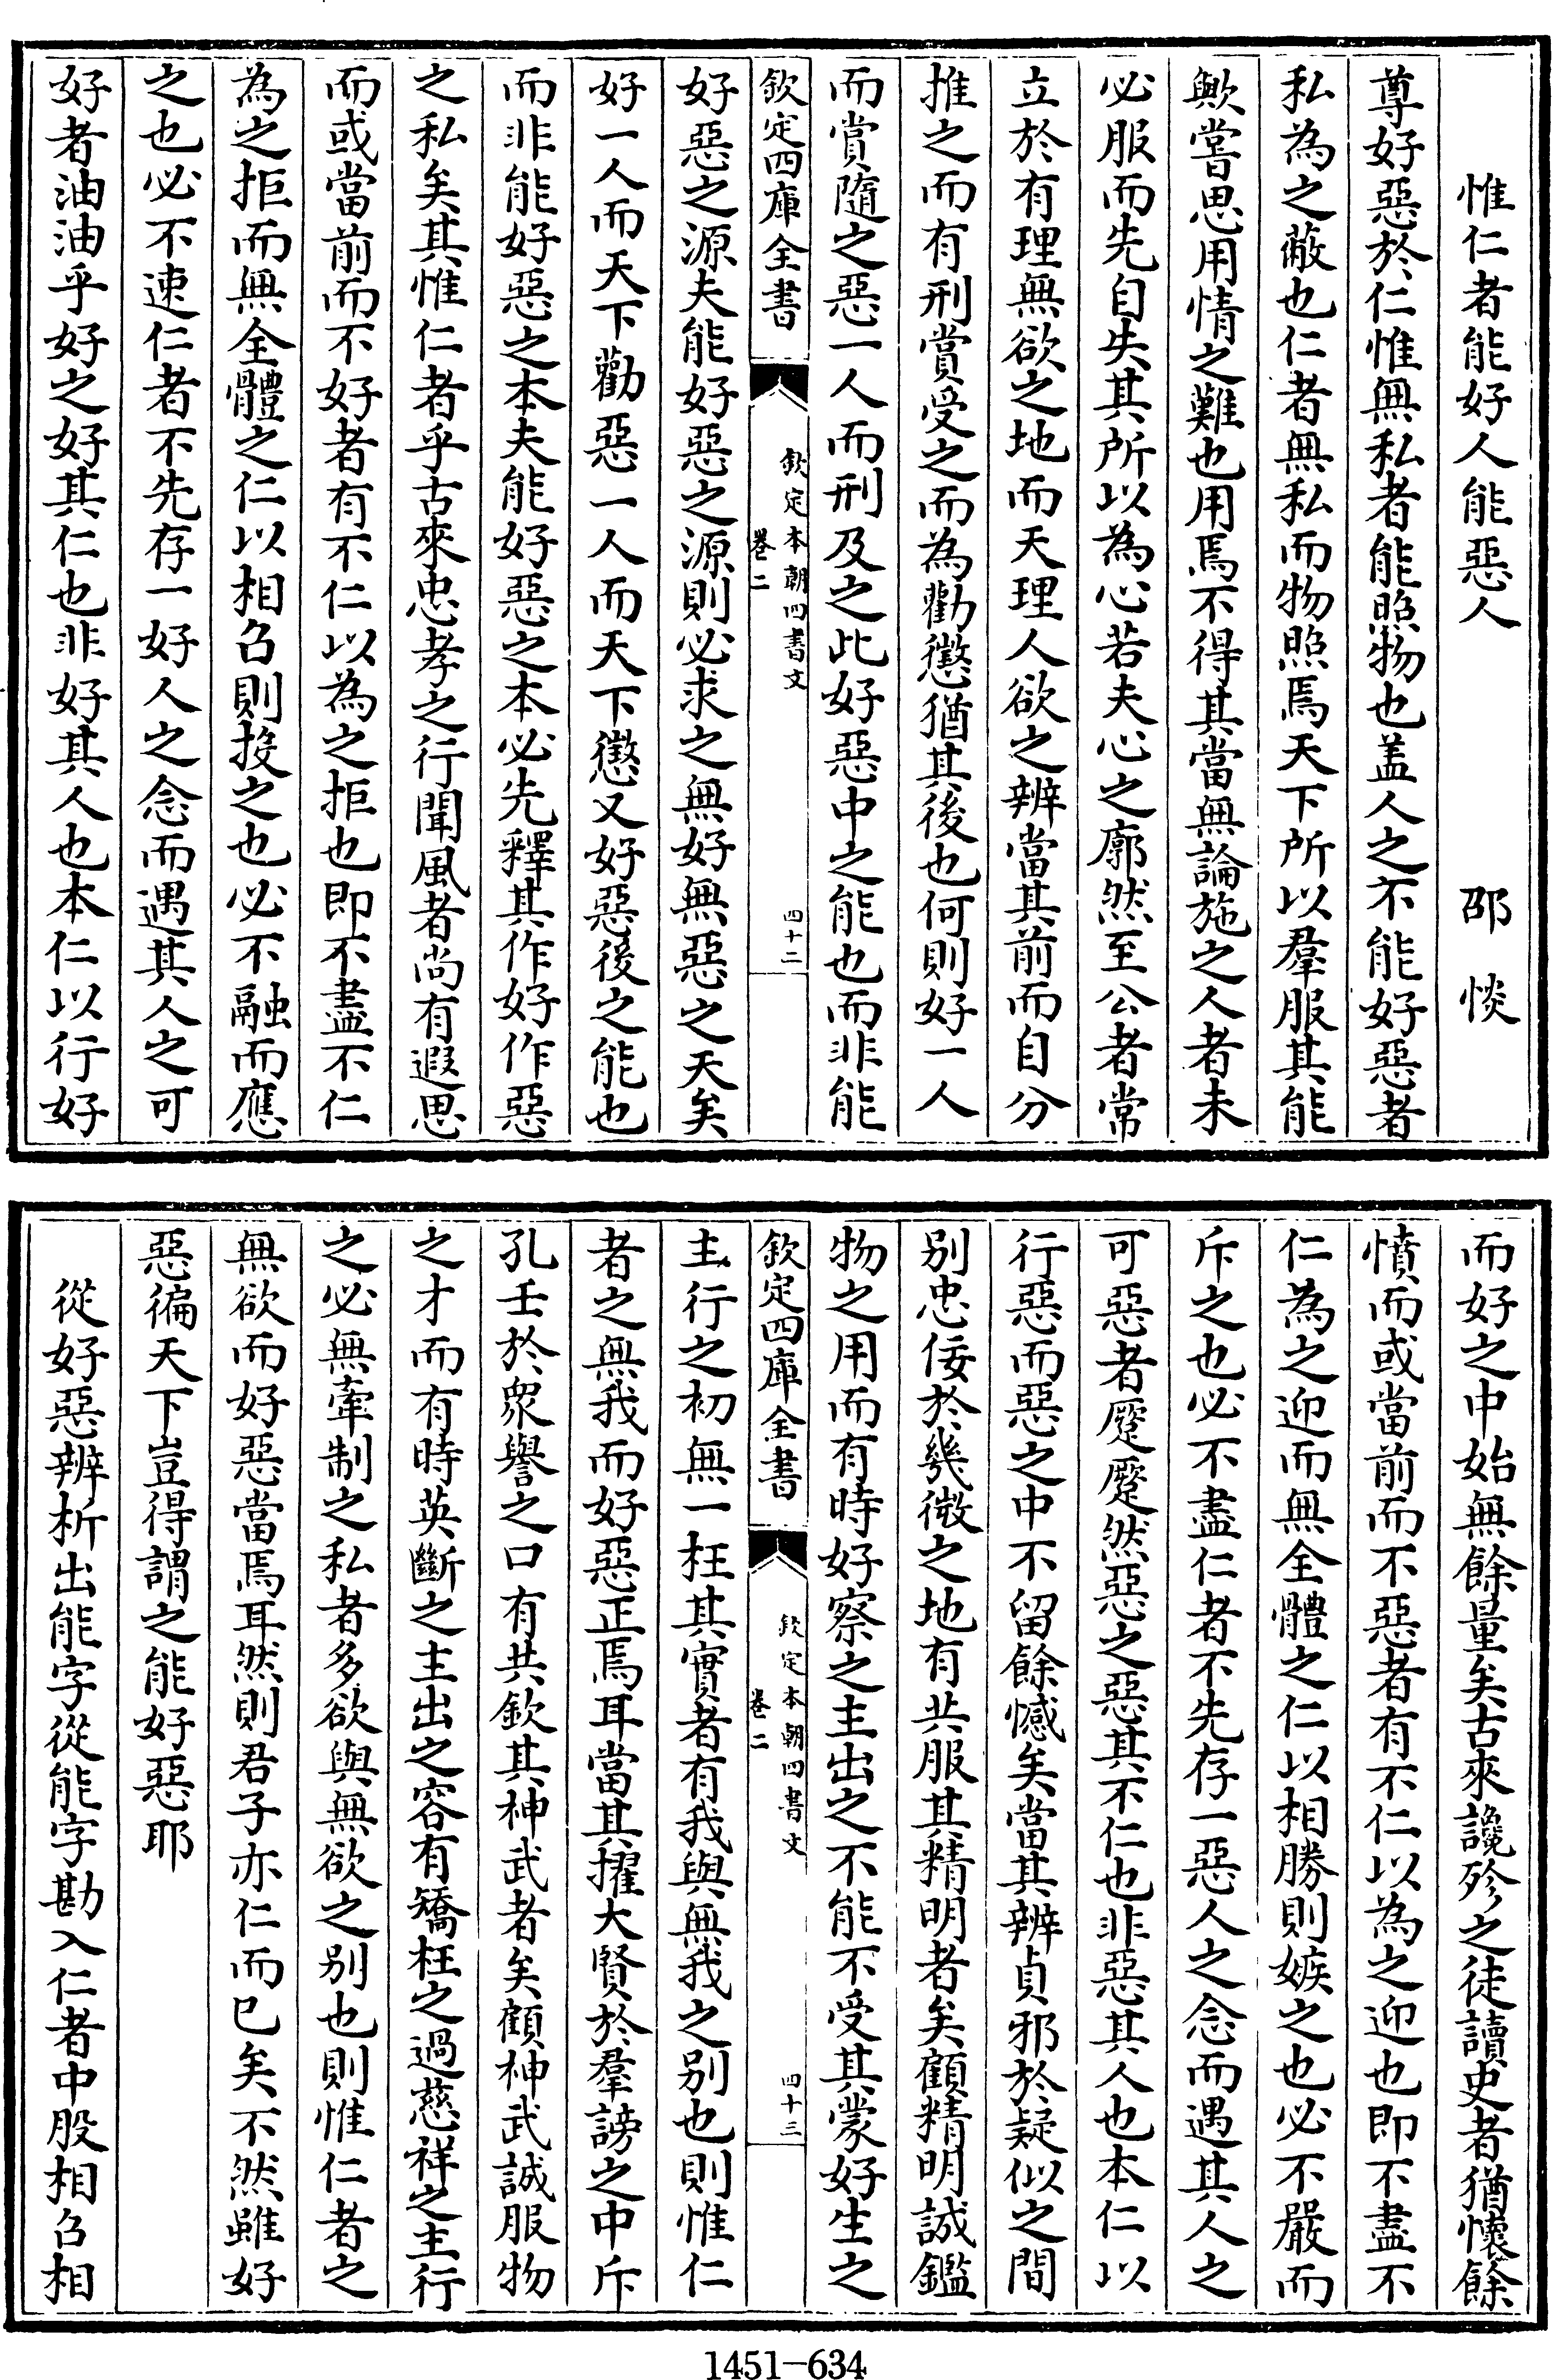 惟仁者能好人能惡人　邵惔
尊好惡於仁惟無私者能照物也盖人之不能好惡者
私為之蔽也仁者無私而物照焉天下所以羣服其能
歟嘗思用情之難也用焉不得其當無論施之人者未
必服而先自失其所以為心若夫心之廓然至公者常
立於有理無欲之地而天理人欲之辨當其前而自分
推之而有刑賞受之而為勸懲猶其後也何則好一人
而賞隨之惡一人而刑及之此好惡中之能也而非能
欽定四庫全書
欽定本朝四書文
卷二
四十二
好惡之源夫能好惡之源則必求之無好無惡之天矣
好一人而天下勸惡一人而天下懲又好惡後之能也
而非能好惡之本夫能好惡之本必先釋其作好作惡
之私矣其惟仁者乎古來忠孝之行聞風者尚有遐思
而或當前而不好者有不仁以為之拒也即不盡不仁
為之拒而無全體之仁以相召則投之也必不融而應
之也必不速仁者不先存一好人之念而遇其人之可
好者油油乎好之好其仁也非好其人也本仁以行好
而好之中始無餘量矣古來讒殄之徒讀史者猶懷餘
憤而或當前而不惡者有不仁以為之迎也即不盡不
仁為之迎而無全體之仁以相勝則嫉之也必不嚴而
斥之也必不盡仁者不先存一惡人之念而遇其人之
可惡者蹷蹷然惡之惡其不仁也非惡其人也本仁以
行惡而惡之中不留餘憾矣當其辨貞邪於疑似之間
别忠佞於幾微之地有共服其精明者矣顧精明誠鑑
物之用而有時好察之主出之不能不受其蒙好生之
欽定四庫全書
欽定本朝四書文
卷二
四十三
主行之初無一枉其實者有我與無我之别也則惟仁
者之無我而好惡正焉耳當其擢大賢於羣謗之中斥
孔壬於衆譽之口有共欽其神武者矣顧神武誠服物
之才而有時英斷之主出之容有矯枉之過慈祥之主行
之必無牽制之私者多欲與無欲之别也則惟仁者之
無欲而好惡當焉耳然則君子亦仁而已矣不然雖好
惡徧天下豈得謂之能好惡耶
從好惡辨析出能字從能字勘入仁者中股相召相
1451-634